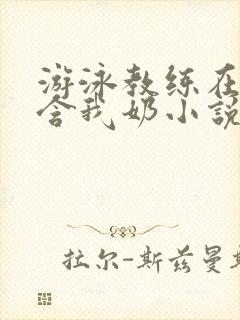 游泳教练在
含我奶小说
拉尔-斯兹曼斯